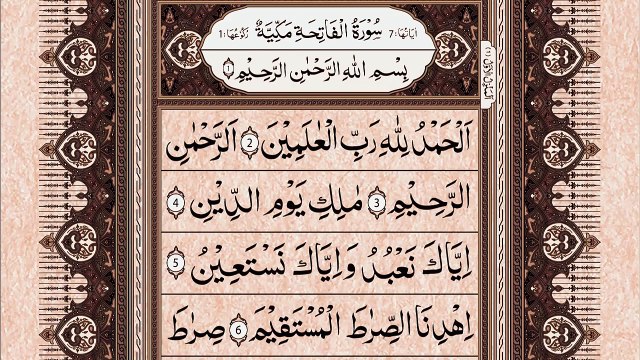 اٰيَاتُهَا:7 سُوْرَةُ الْفَاتِحَةِ مَكِّيَّةٌ رُكُوْعُهَا:1
بِسْمِ اللهِ الرَّحْمٰنِ الرَّحِيْمِ 1
اَلْحَمْدُ لِلّٰهِ رَبِّ الْعٰلَمِيْنَ 2 الرَّحْمٰنِ
الرَّحِيْمِ 3 مٰلِكِ يَوْمِ الدِّيْنِ 4
اِيَّاكَ نَعْبُدُ وَاِيَّاكَ نَسْتَعِيْنُ 5
اِهْدِنَا الصِّرَاطَ الْمُسْتَقِيْمَ 6 صِرَاطَ